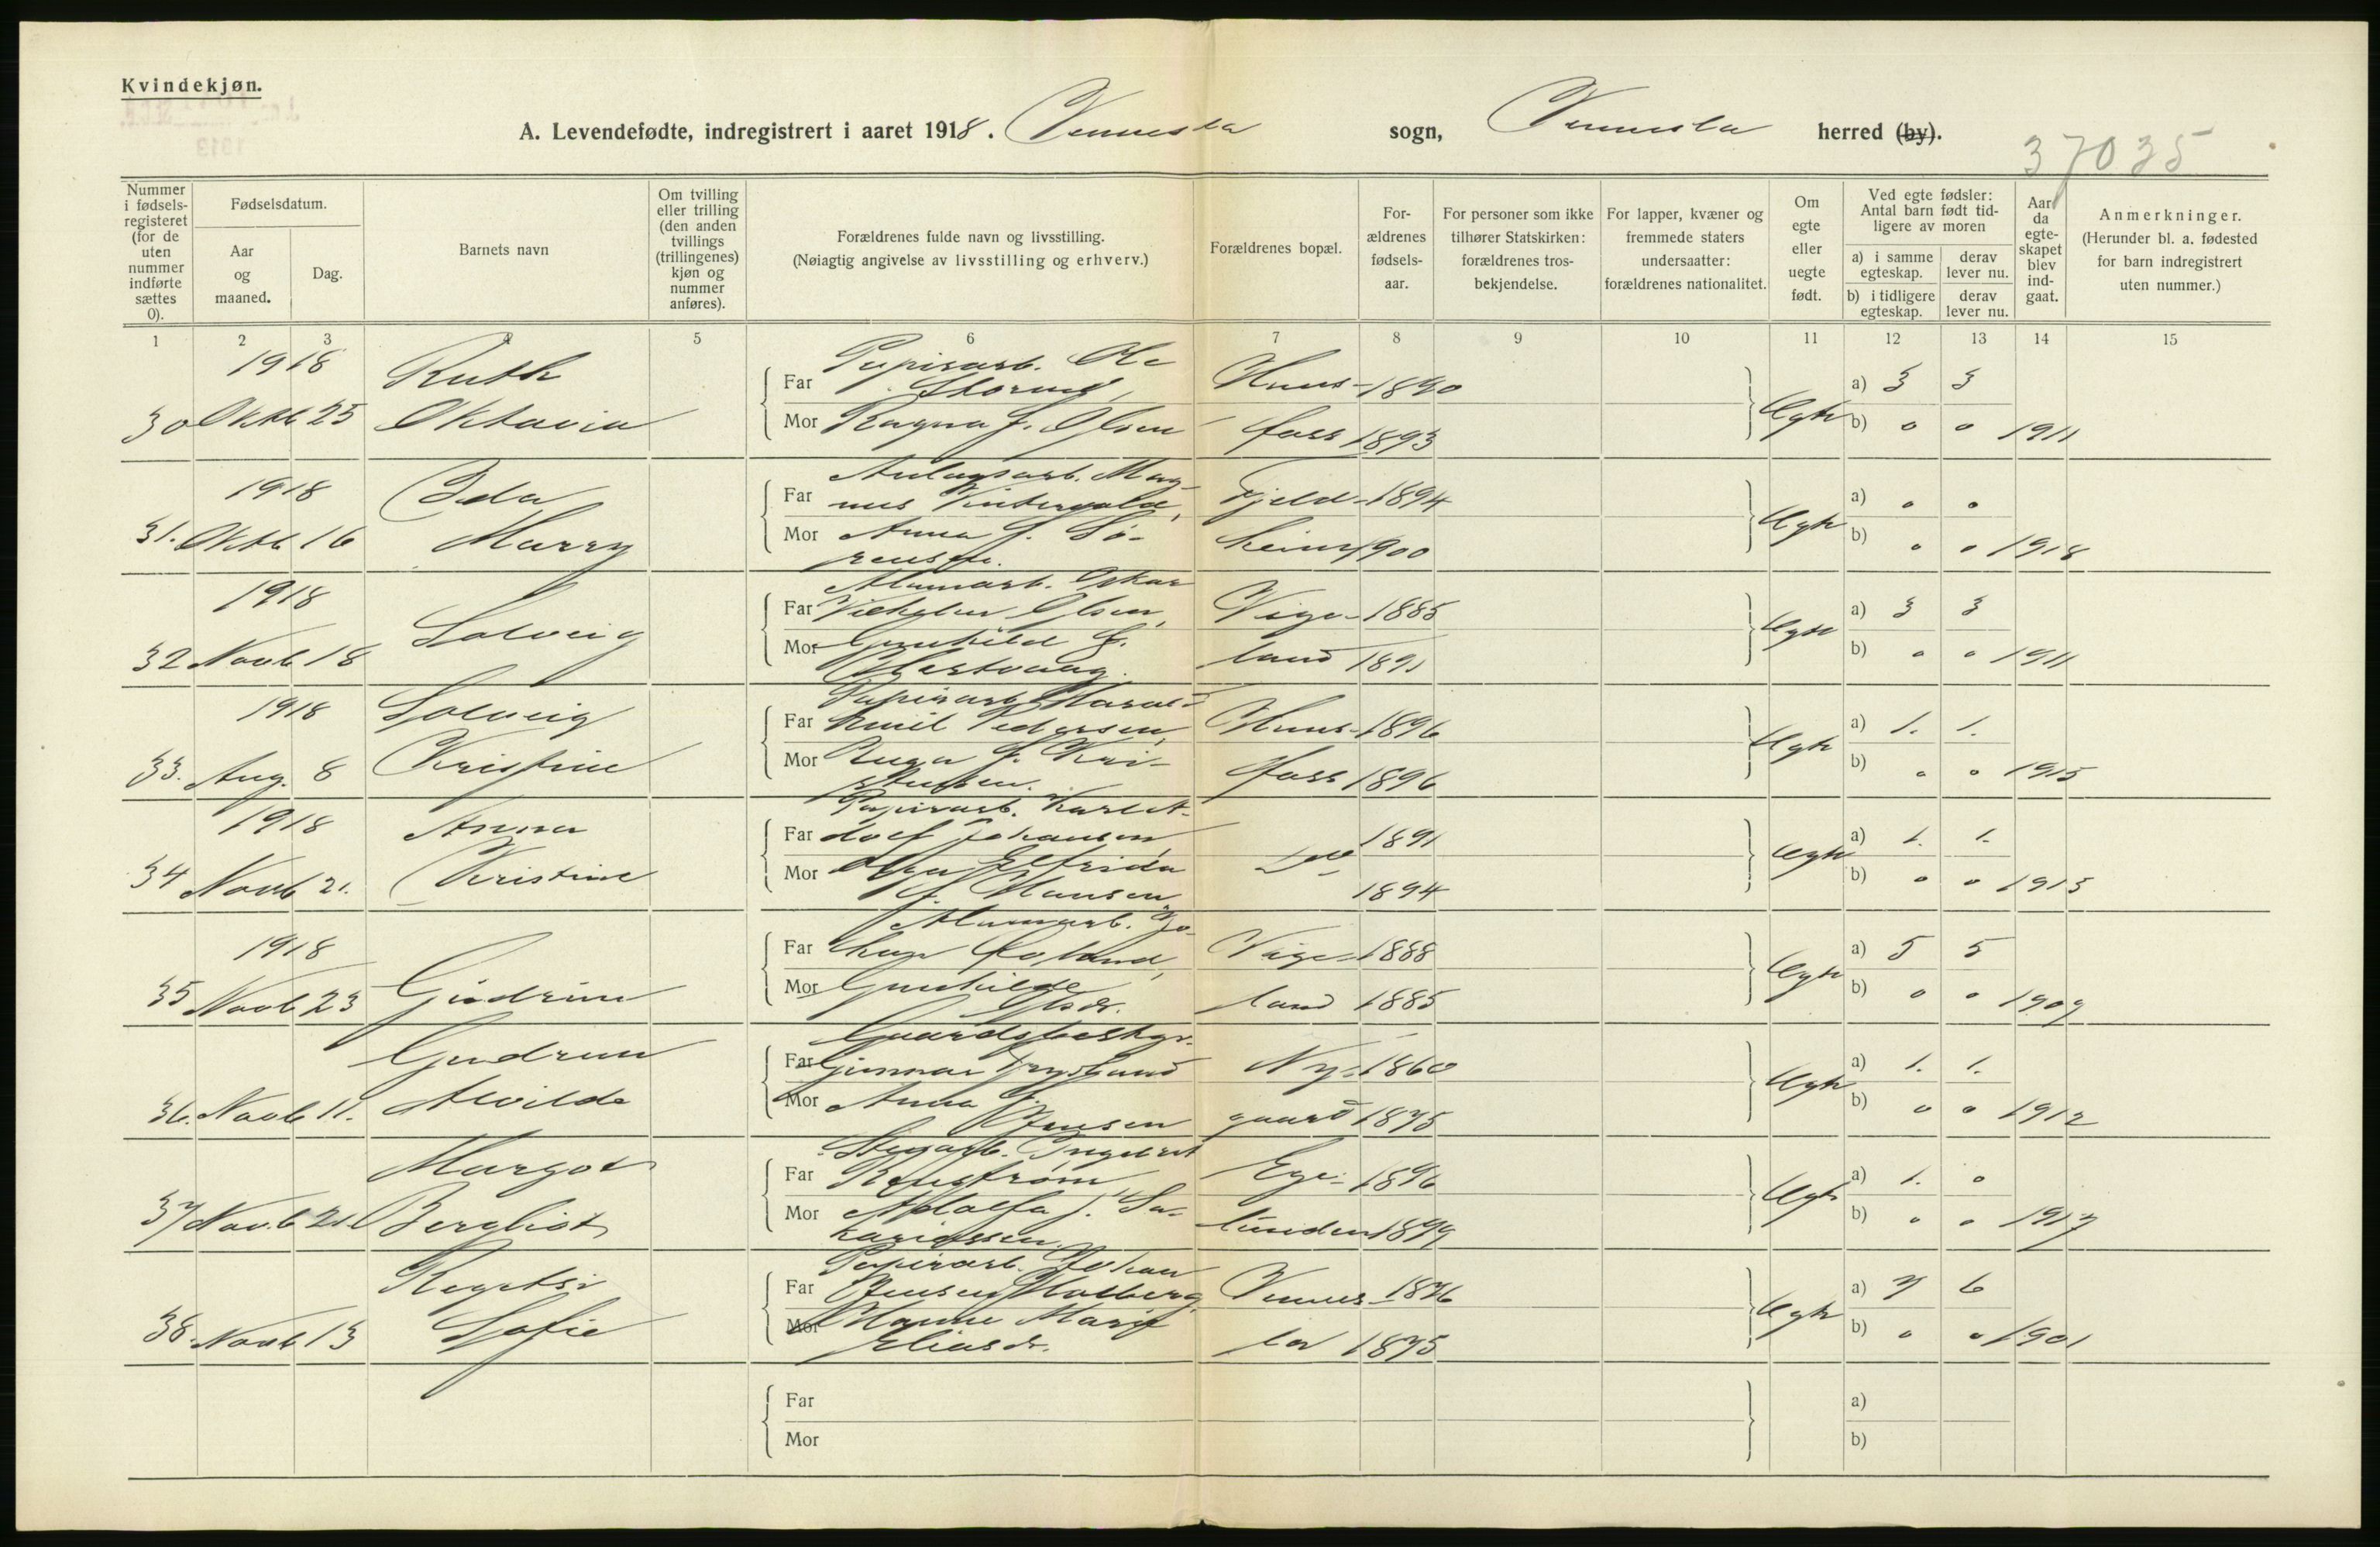 Kvindekjøn.
A. Levendefødte, indregistrert i aaret 1918. Vennesla sogn, Vennesla herred (by).
37035
Nummer i fødselsregisteret (for de uten nummer indførte sættes 0).
Fødselsdatum.
Aar og maaned.
Dag.
Barnets navn
Om tvilling eller trilling (den anden tvillings (trillingenes) kjøn og nummer anføres).
Forældrenes fulde navn og livsstilling.
(Nøiagtig angivelse av livsstilling og erhverv.)
Forældrenes bopæl.
Forældrenes fødselsaar.
For personer som ikke tilhører Statskirken: forældrenes trosbekjendelse.
For lapper, kvæner og fremmede staters undersaatter: forældrenes nationalitet.
Om egte eller uegte født.
Ved egte fødsler: Antal barn født tidligere av moren
a) i samme egteskap.
derav lever nu.
b) i tidligere egteskap.
derav lever nu.
Aar da egteskapet blev indgaat.
Anmerkninger.
(Herunder bl. a. fødested for barn indregistrert uten nummer.)
1 2 3 4 5 6 7 8 9 10 11 12 13 14 15
1918 Ruth Papirarb. Ole
Far Huns- 1890 a) 3 3
30 Oktb 25 Oktavia Mor Ragna f. Olsen foss 1893 Egte b) 0 0 1911
1918 Ida Anlægsarb. Mag-
Far nus Fjeld- 1894 a) 0 0
31. Oktb 16 Marry Mor Anna f. Sö- heim 1900 Egte b) 0 0 1918
rensen.
1918 Alumarb. Oskar
Far Vilhelm Olsen, Vige- 1885 a) 3 3
32 Novb 18 Solveig Mor Gunhild f. land 1891 Egte b) 0 0 1911
1918 Solveig Papirarb. Harald
Far Emil Pedersen, Huns- 1896 a) 1. 1.
33. Aug. 8 Kristine Mor f. Kri- foss 1896 Egte b) 0 0 1915
stensen.
1918 Anna Papirarb. Karl A-
Far dolf Johansen 1891 a) 1. 1.
34 Novb 21. Kristine Mor Olga Elfrida 1894 Egte b) 0 0 1915
f. Hansen
1918 Alumarb. Jo-
Far han Vige- 1888 a) 5 5
35 Novb 23 Gudrun Mor Gunhilde land 1885 Egte b) 0 0 1909
Olsdr.
Gudrun Gaardsbestyr.
Far Gunnar Ny- 1860 a) 1. 1.
36. Novb 11. Alvilde Mor Anna f. gaard 1875 Egte b) 0 0 1912
Jensen
Margot Ingebret
Far Ege- 1896 a) 1. 0
37 Novb 21 Bergliot Mor Adolfa f. Sa- lunden 1899 Egte b) 0 0 1917
kariassen.
Papirarb. Johan
Far Jensen Holberg Vennes- 1876 a) 7 6
38. Novb 13 Sofie Mor Hanne Marie la 1875 Egte b) 0 0 1901
Eliasdr.
Far a)
Mor b)